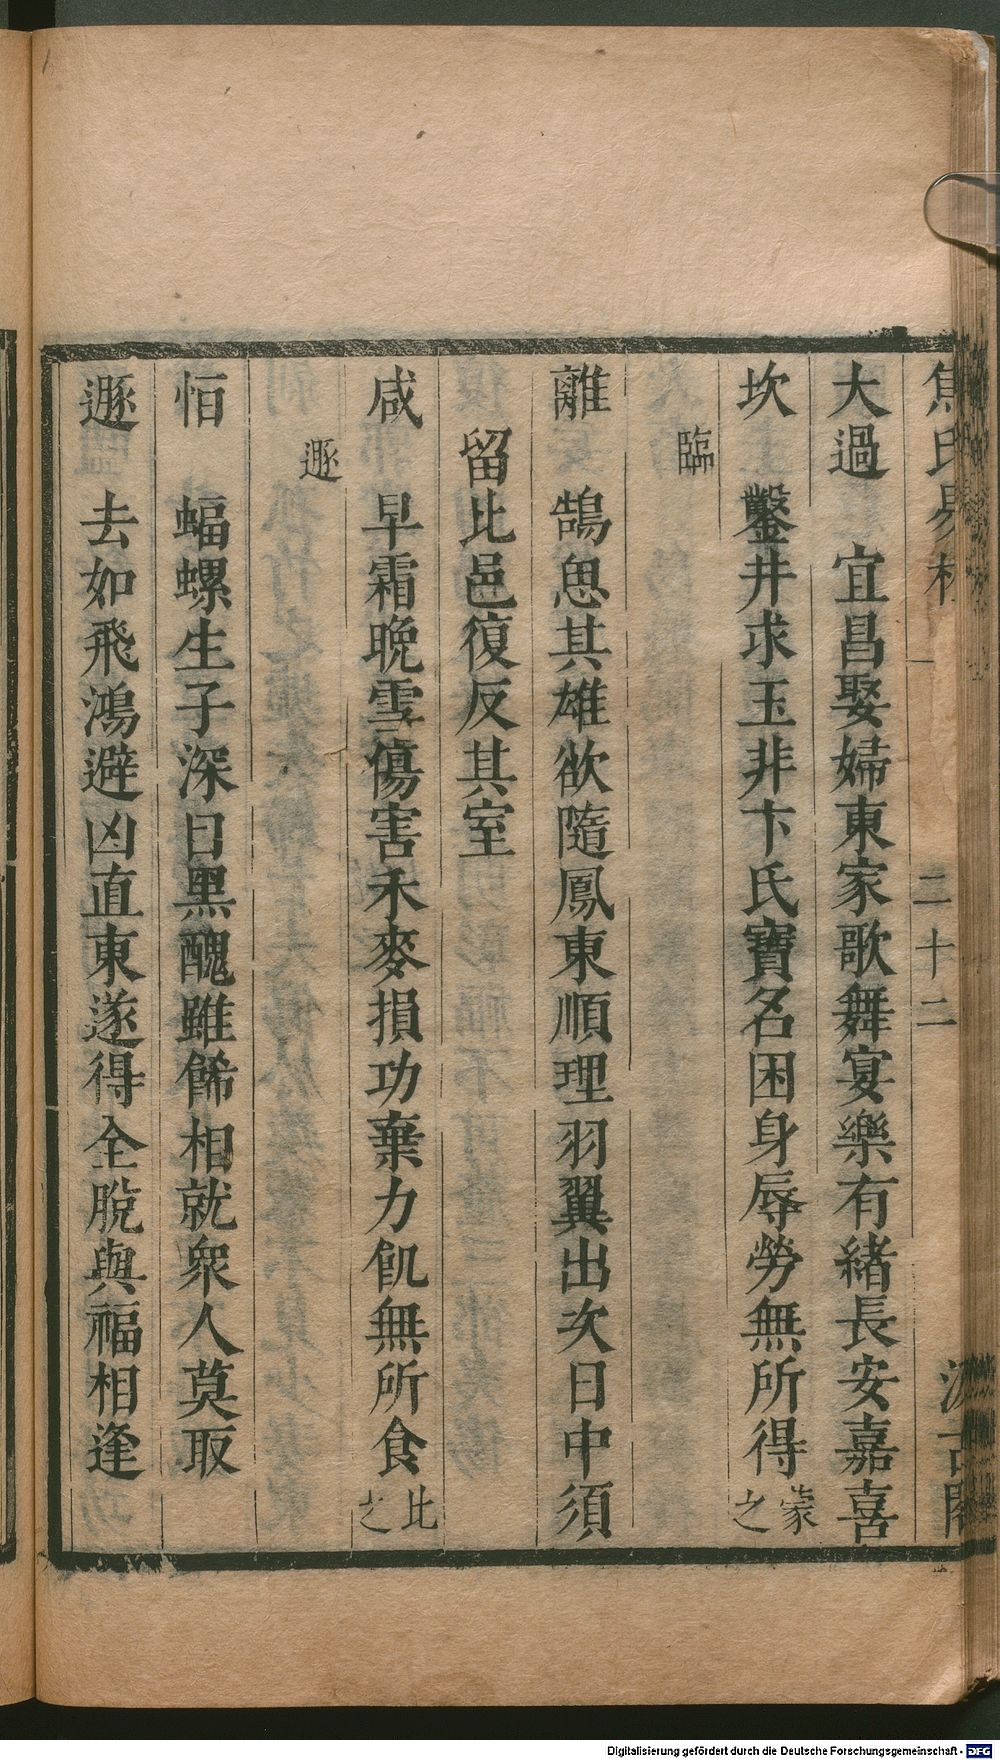 焦氏易林 二十二 汲古閣
大過 宜昌娶婦東家歌舞宴樂有緒長安嘉喜
坎 鑿井求玉非卞氏寶名困身辱勞無所得蒙之
臨
離 鵠思其雄欲隨鳳東順理羽翼出次日中須
留比邑復反其室
咸 早霜晚雪傷害禾麥損功棄力飢無所食比之
遯
恒 蝠螺生子深目黑醜雖餙相就衆人莫取
遯 去如飛鴻避凶直東遂得全脫與福相逢
Digitalisierung gefördert durch die Deutsche Forschungsgemeinschaft - DFG